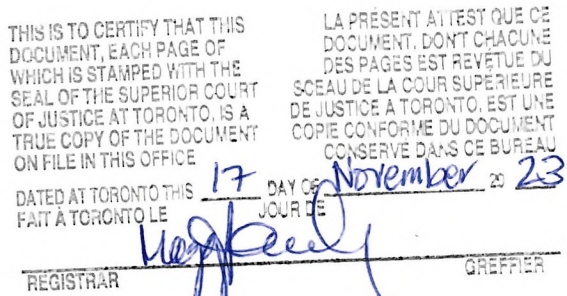 THIS IS TO CERTIFY THAT THIS
DOCUMENT, EACH PAGE OF
WHICH IS STAMPED WITH THE
SEAL OF THE SUPERIOR COURT
OF JUSTICE AT TORONTO, IS A
TRUE COPY OF THE DOCUMENT
ON FILE IN THIS OFFICE
LA PRÉSENT ATTEST QUE CE
DOCUMENT, DONT CHACUNE
DES PAGES EST REVÊTUE DU
SCEAU DE LA COUR SUPÉRIEURE
DE JUSTICE A TORONTO, EST UNE
COPIE CONFORME DU DOCUMENT
CONSERVÉ DANS CE BUREAU
DATED AT TORONTO THIS 17 DAY OF November 20 23
FAIT À TORONTO LE JOUR DE
REGISTRAR GREFFIER